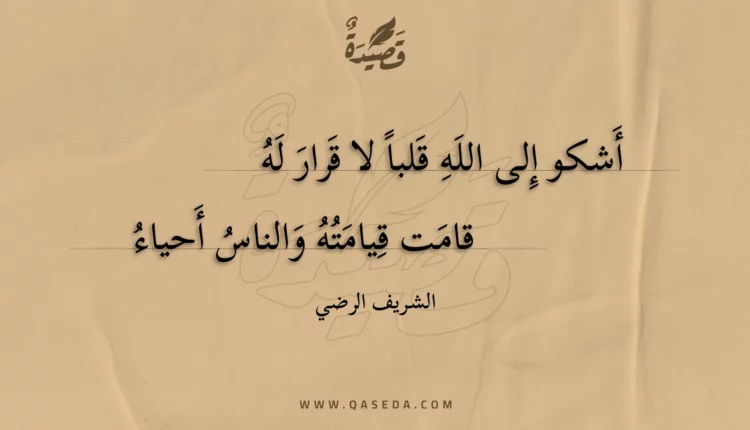 قَصِيدَةٌ
أَشكو إِلى اللَهِ قَلباً لا قَرارَ لَهُ
قامَت قِيامَتُهُ وَالناسُ أَحياءُ
الشريف الرضي
WWW.QASEDA.COM